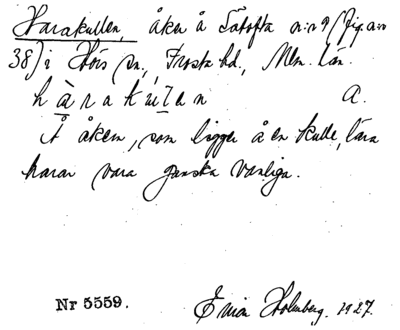 Harakullen, åker å Såtofta n:r 9 (fig. a.nr
38) i Hörs sn, Frosta hd, Mlm. län.
hàrakùlen A.
På åkern, som ligger å en kulle, lära
harar vara ganska vanliga.
Nr 5559. Erica Holmberg. 1927.